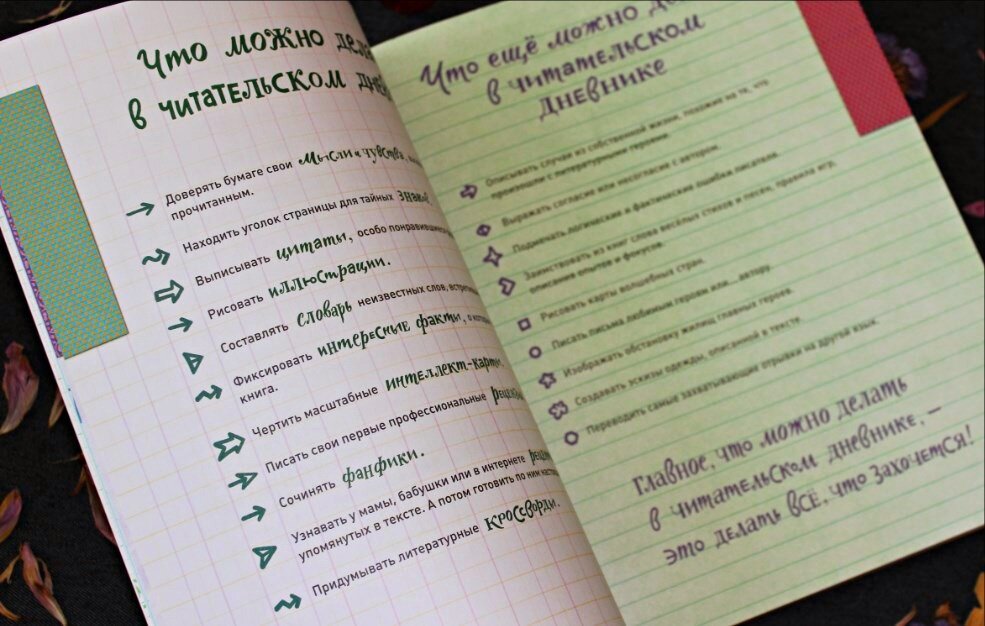 Что можно
в читательском
Доверять бумаге свои мысли и чувства,
прочитанным.
Находить уголок страницы для тайных
Выписывать цитаты, особо
Рисовать иллюстрации.
Составлять словарь неизвестных слов,
Фиксировать интересные факты, о
книга.
Чертить масштабные интеллект-карты.
Писать свои первые профессиональные
Сочинять фанфики.
Узнавать у мамы, бабушки или в интернете
упомянутых в тексте. А потом готовить по ним
Придумывать литературные кроссворды.
Что ещё можно
в читательском
дневнике
Описывать случаи из собственной жизни, похожие на те, что
произошли с литературными героями.
Выражать согласие или несогласие с автором.
Подмечать логические и фактические ошибки писателя.
Заимствовать из книг слова весёлых стихов и песен, правила игр,
описания опытов и фокусов.
Рисовать карты волшебных стран.
Писать письма любимым героям или... автору.
Изображать обстановку жилищ главных героев.
Создавать эскизы одежды, описанной в тексте.
Переводить самые захватывающие отрывки на другой язык.
Главное, что можно делать
в читательском дневнике, —
это делать всё, что захочется!